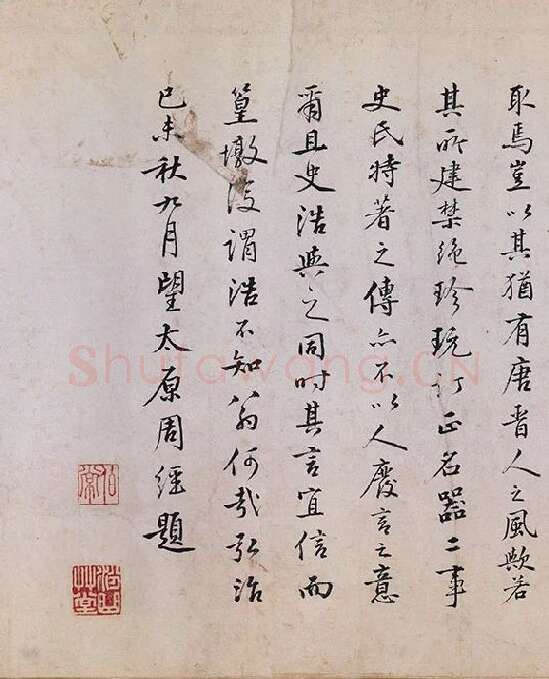 取焉豈以其猶有唐晉人之風歟若
其所建禁絕珍玩訂正名器二事
史氏時著之傳亦不以人廢言之意
爾且史浩與之同時其言宜信而
篁墩後謂浩不知八翁何哉弘治
己未秋九月望太原周經題
Shufawang.CN
草堂